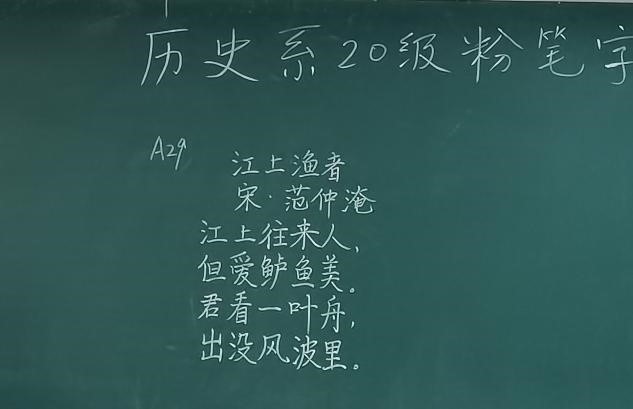 历史系20级粉笔字
A29
江上渔者
宋·范仲淹
江上往来人，
但爱鲈鱼美。
君看一叶舟，
出没风波里。